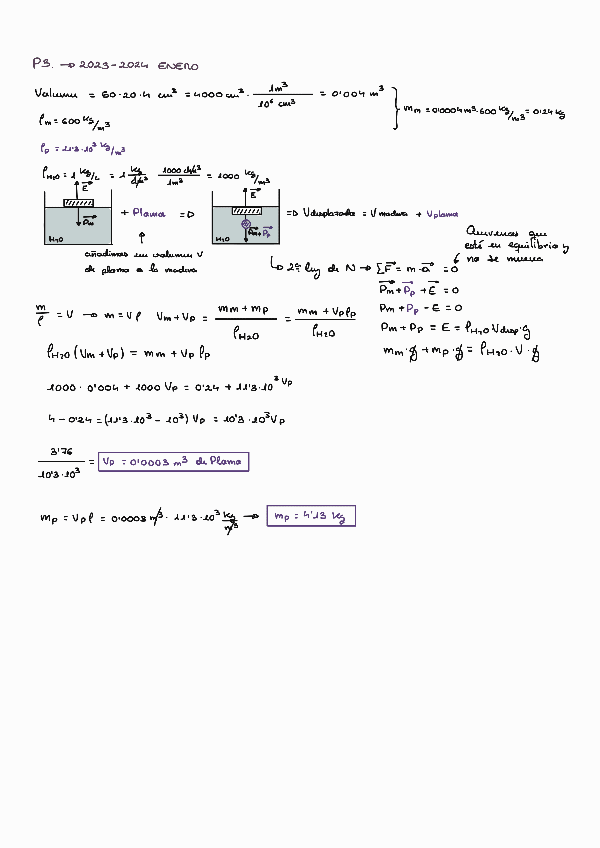 P3. → 2023-2024 ENERO
Volumen = 50·20·4 cm³ = 4000 cm³ · 1m³ / 10⁶ cm³ = 0'004 m³
ρm = 600 kg/m³
mm = 0'0004 m³·600 kg/m³ = 0'24 kg
ρp = 11'3·10³ kg/m³
ρH2O = 1 kg/L = 1 kg/dm³ · 1000 dm³/1m³ = 1000 kg/m³
E
Pm
H2O
+ Plomo ⇒
añadimos un volumen V
de plomo a la madera
E
Pm+Pp
H2O
⇒ Vdesplazado = Vmadera + Vplomo
Queremos que
esté en equilibrio y
no se mueva
↳ 2ª ley de N → ΣF = m·a = 0
Pm + Pp + E = 0
Pm + Pp - E = 0
Pm + Pp = E = ρH2O Vdesp·g
mm·g + mp·g = ρH2O·V·g
m/ρ = V → m = Vρ Vm + Vp = mm + mp / ρH2O = mm + Vpρp / ρH2O
ρH2O (Vm + Vp) = mm + Vp ρp
1000·0'004 + 1000 Vp = 0'24 + 11'3·10³ Vp
4 - 0'24 = (11'3·10³ - 10³) Vp = 10'3·10³ Vp
3'76 / 10'3·10³ = Vp = 0'0003 m³ de Plomo
mp = Vpρ = 0'0003 m³ · 11'3·10³ kg/m³ → mp = 4'13 kg